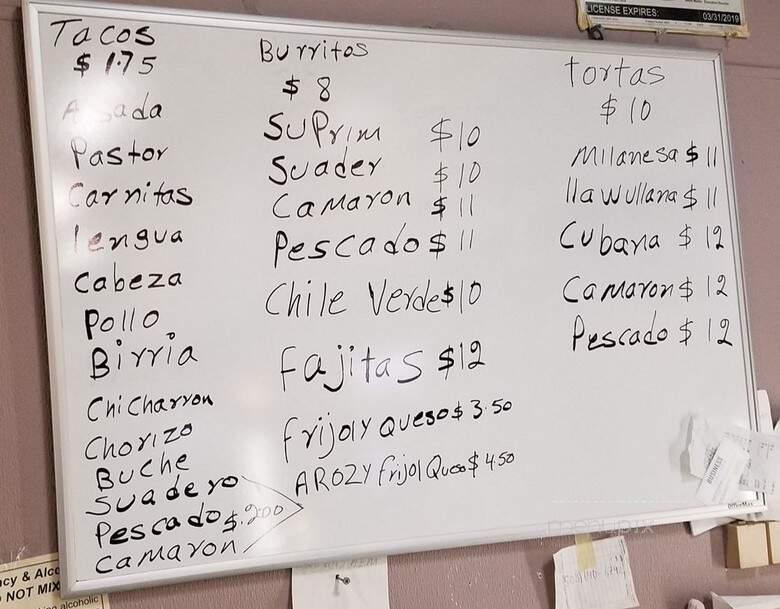 Tacos
$ 1.75
Asada
Pastor
Carnitas
lengua
Cabeza
Pollo
Birria
Chicharron
Chorizo
Buche
Suadero
Pescado $.2.00
Camaron
Burritos
$ 8
SuPrim $10
Suader $10
Camaron $11
Pescado $11
Chile Verde $10
Fajitas $12
FrijolY Queso $3.50
AROZY Frijol Queso $4.50
tortas
$ 10
Milanesa $11
llawullana $11
Cubana $12
Camaron $12
Pescado $12
LICENSE EXPIRES: 03/31/2019
OfficeMax
menupix
BUSINESS
NOT MIX
alcoholic